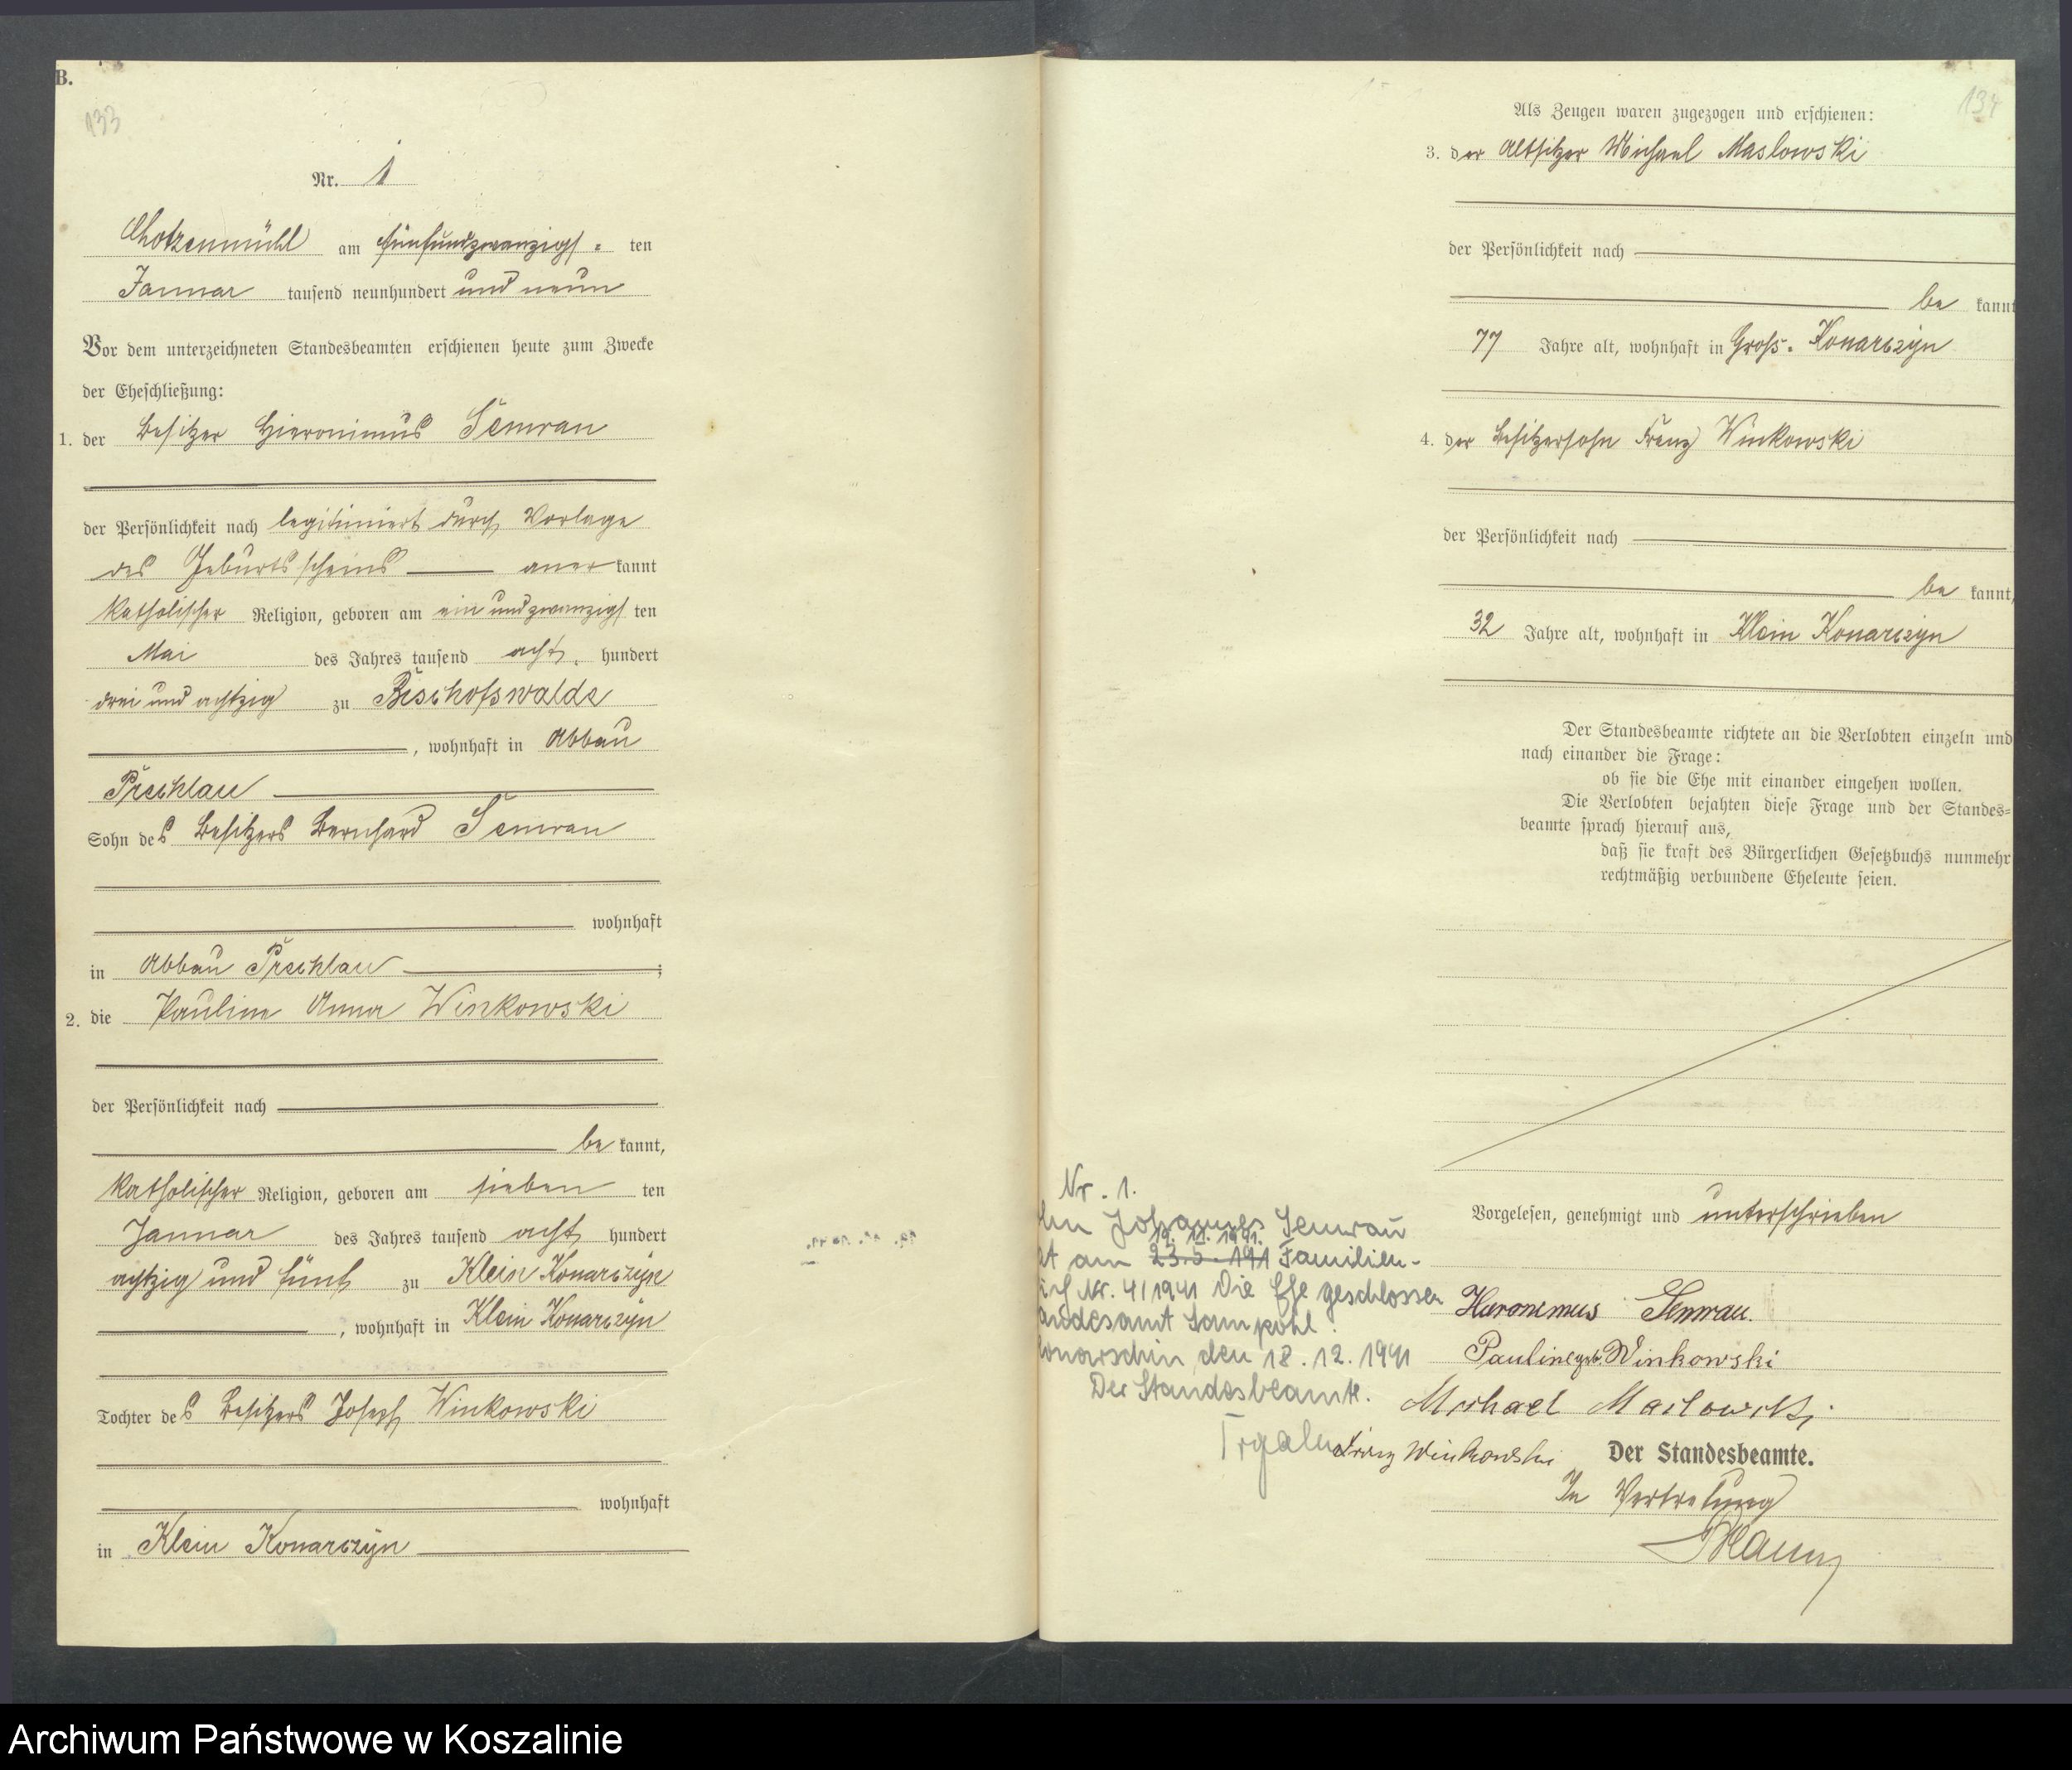 B.
133
Nr. 1
Chotzenmühl am fünfundzwanzigs- ten
Januar tausend neunhundert und neun
Vor dem unterzeichneten Standesbeamten erschienen heute zum Zwecke
der Eheschließung:
1. der Besitzer Hieronimus Semrau
der Persönlichkeit nach legitimiert durch Vorlage
des Geburtsscheins aner kannt
katholischer Religion, geboren am ein und zwanzigs ten
Mai des Jahres tausend acht hundert
drei und achtzig zu Bischofswalde
, wohnhaft in Abbau
Prechlau
Sohn des Besitzers Bernhard Semrau
wohnhaft
in Abbau Prechlau ;
2. die Pauline Anna Winkowski
der Persönlichkeit nach
be kannt,
katholischer Religion, geboren am sieben ten
Januar des Jahres tausend acht hundert
achtzig und fünf zu Klein Konarczyn
, wohnhaft in Klein Konarczyn
Tochter des Besitzers Josef Winkowski
wohnhaft
in Klein Konarczyn
134
Als Zeugen waren zugezogen und erschienen:
3. der Altsitzer Michael Maslowski
der Persönlichkeit nach
be kannt
77 Jahre alt, wohnhaft in Gross-Konarczyn
4. der Besitzersohn Franz Winkowski
der Persönlichkeit nach
be kannt,
32 Jahre alt, wohnhaft in Klein Konarczyn
Der Standesbeamte richtete an die Verlobten einzeln und
nach einander die Frage:
ob sie die Ehe mit einander eingehen wollen.
Die Verlobten bejahten diese Frage und der Standes-
beamte sprach hierauf aus,
daß sie kraft des Bürgerlichen Gesetzbuchs nunmehr
rechtmäßig verbundene Eheleute seien.
Vorgelesen, genehmigt und unterschrieben
Hieronimus Semrau.
Pauline geb. Winkowski
Michael Maslowski
Franz Winkowski
Der Standesbeamte.
In Vertretung
Nr. 1.
Johannes Semrau
19. 11. 1941.
at am 23.5.1941 Familien-
Nr. 4/1941 Die Ehe geschlossen
andesamt Sampohl.
onarschin den 18.12.1941
Der Standesbeamte.
Archiwum Państwowe w Koszalinie